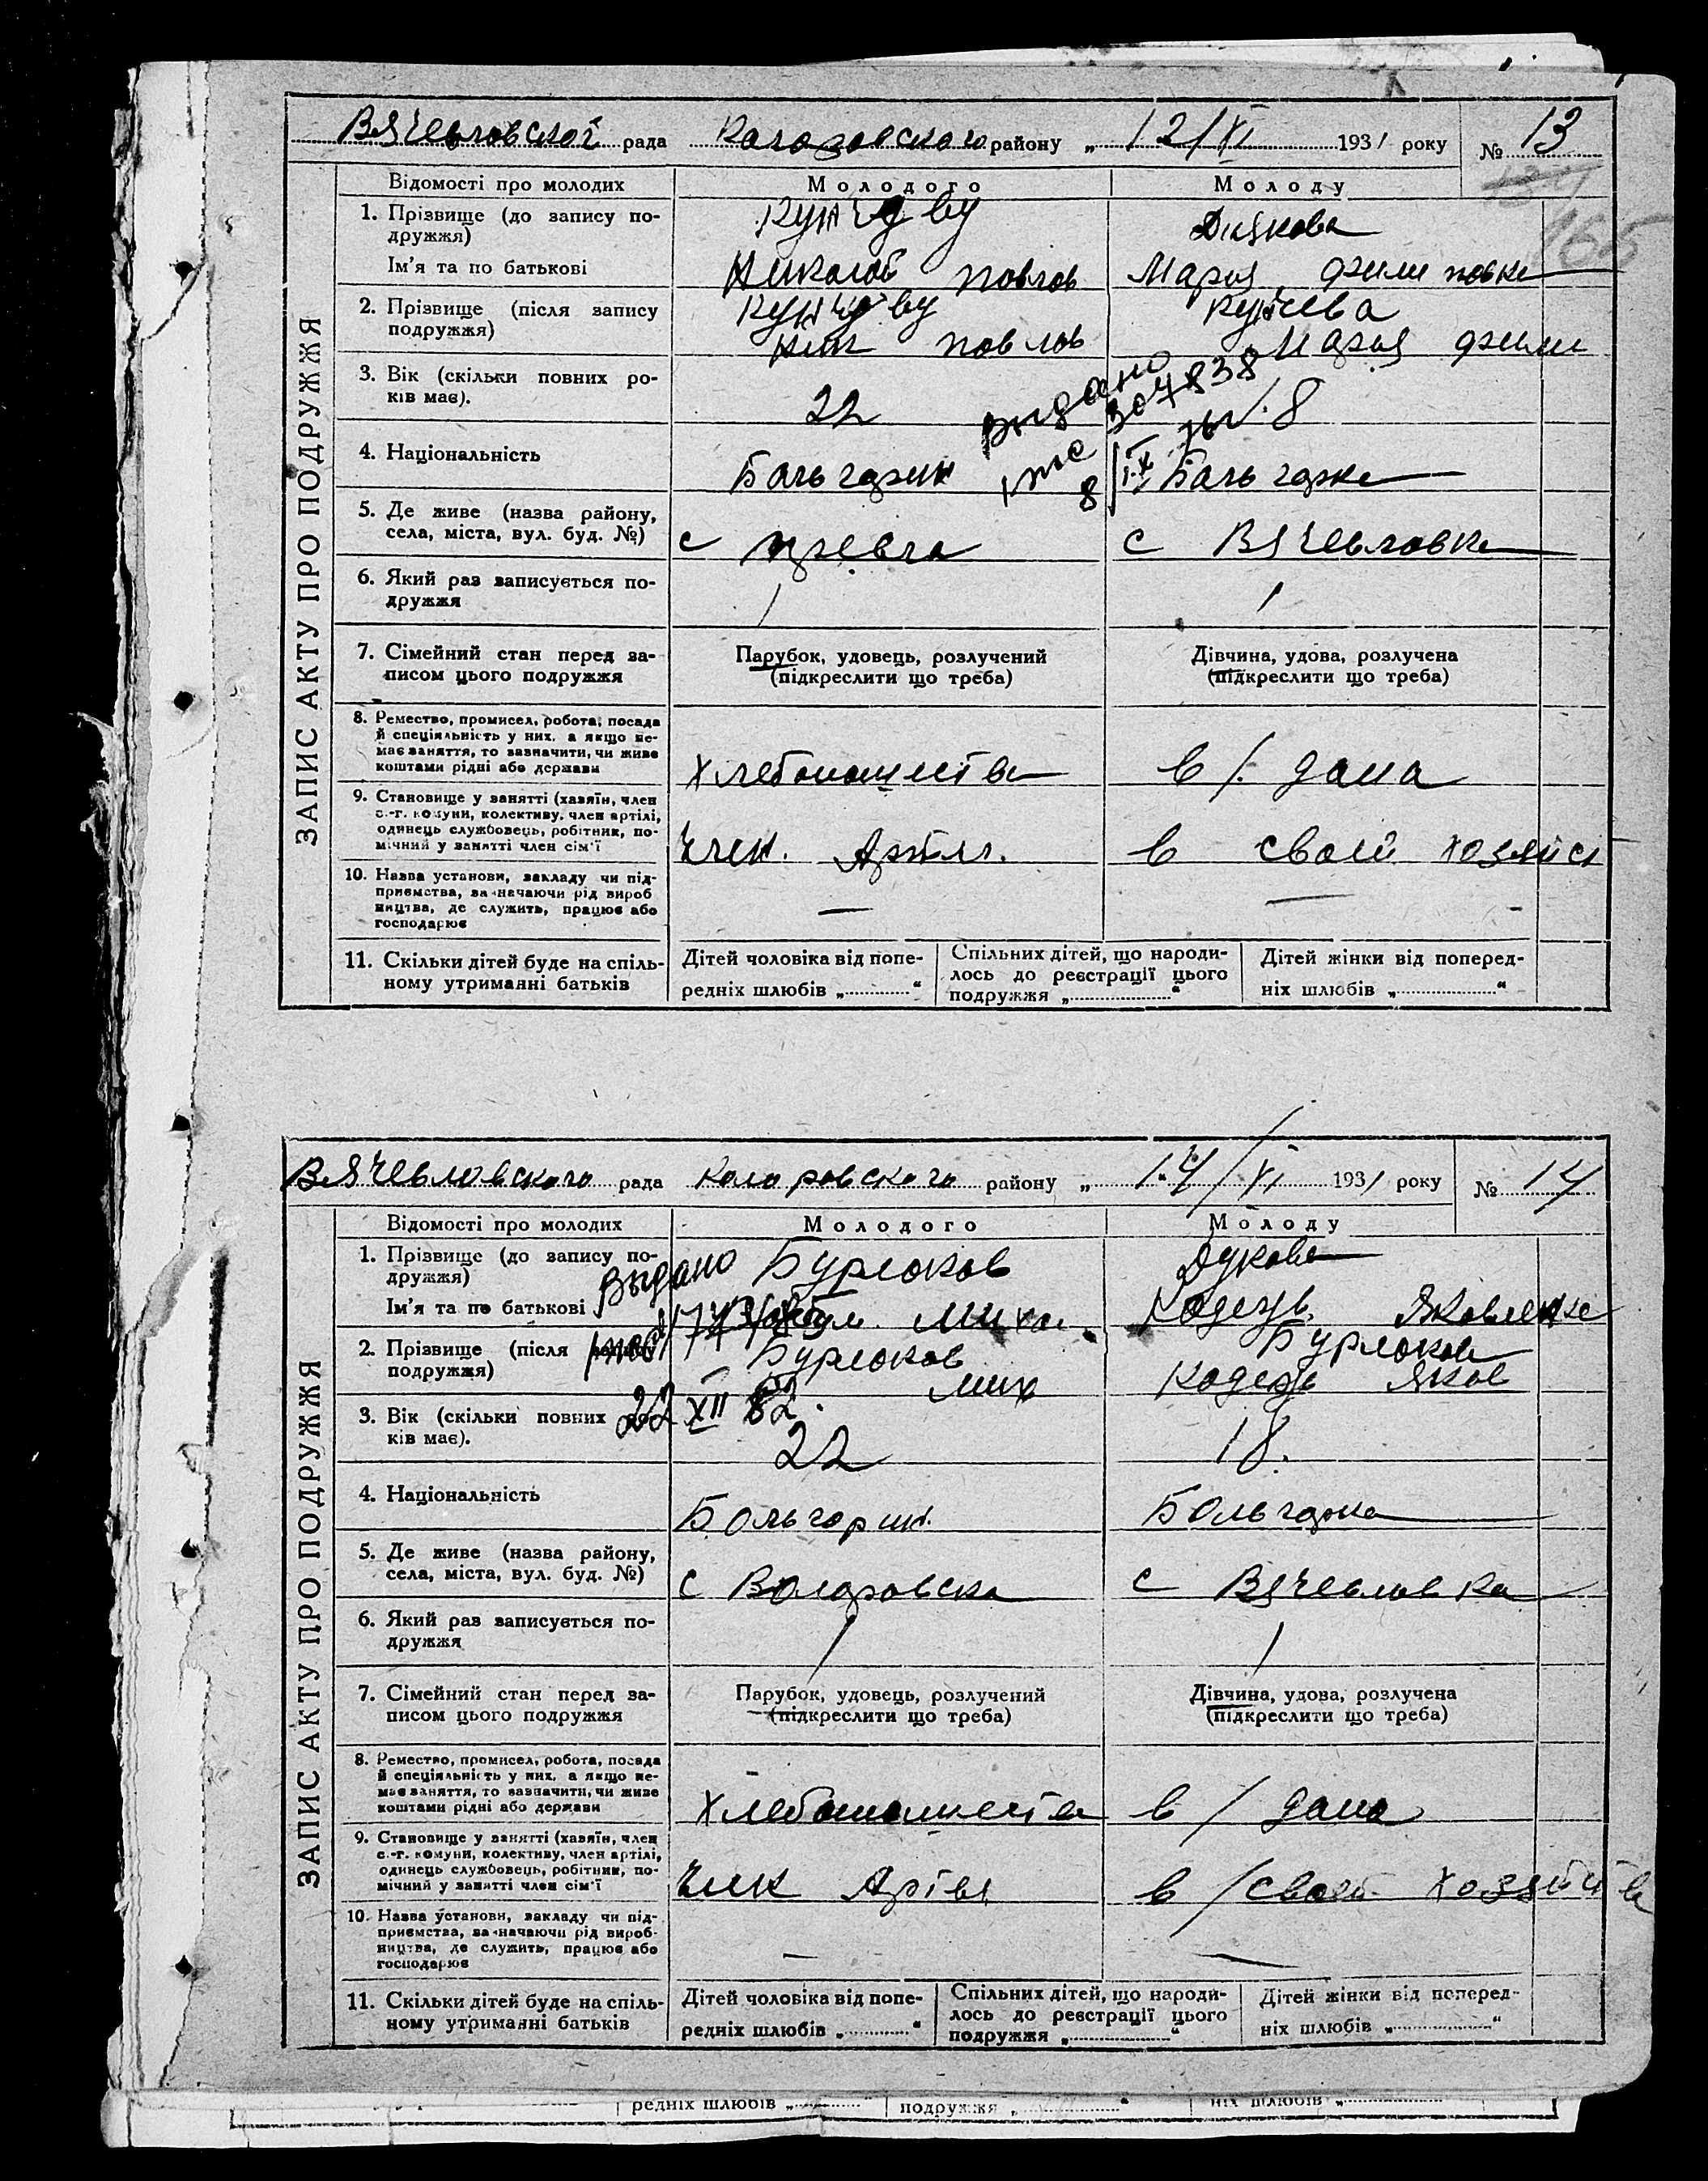 Вячевловской рада Колоровского району „ 12/XI 1931 року № 13
165
ЗАПИС АКТУ ПРО ПОДРУЖЖЯ
Відомості про молодих Молодого Молоду
1. Прізвище (до запису по-
дружжя) Диякова
Ім'я та по батькові Николай Повлов Мария
2. Прізвище (після запису
подружжя) Кунчева
Ник Повлов Мария
3. Вік (скільки повних ро-
ків має). 22 18
Выдано
307838
4. Національність Больгарин Больгарка
8/IX
5. Де живе (назва району,
села, міста, вул. буд. №) с с Вячевловка
6. Який раз записується по-
дружжя 1 1
7. Сімейний стан перед за-
писом цього подружжя
Парубок, удовець, розлучений
(підкреслити що треба)
Дівчина, удова, розлучена
(підкреслити що треба)
8. Ремество, промисел, робота, посада
й спеціяльність у них, а якщо не-
має заняття, то зазначити, чи живе
коштами рідні або держави
Хлебопашества в/. дома
9. Становище у занятті (хазяїн, член
с.-г. комуни, колективу, член артілі,
одинець службовець, робітник, по-
мічний у занятті член сім'ї
Член. Артел. в своей хозяйст
10. Назва установи, закладу чи під-
приємства, зазначаючи рід вироб
ництва, де служить, працює або
господарює
— —
11. Скільки дітей буде на спіль-
ному утриманні батьків
Дітей чоловіка від попе-
редніх шлюбів „ “
Спільних дітей, що народи-
лось до реєстрації цього
подружжя „ “
Дітей жінки від поперед-
ніх шлюбів „ “
Вячевловского рада Колоровского району „ 14/XI 1931 року № 14
ЗАПИС АКТУ ПРО ПОДРУЖЖЯ
Відомості про молодих Молодого Молоду
1. Прізвище (до запису по-
дружжя) Выдано Бурлоков Дукова
Ім'я та по батькові Миха. Яковленка
2. Прізвище (після запису
подружжя) Бурлоков Бурлокова
Мих Яков
3. Вік (скільки повних ро-
ків має). 22 18.
22 XII 52.
4. Національність Больгорин. Больгарка
5. Де живе (назва району,
села, міста, вул. буд. №) с с Вячевловка
6. Який раз записується по-
дружжя 1 1
7. Сімейний стан перед за-
писом цього подружжя
Парубок, удовець, розлучений
(підкреслити що треба)
Дівчина, удова, розлучена
(підкреслити що треба)
8. Ремество, промисел, робота, посада
й спеціяльність у них, а якщо не-
має заняття, то зазначити, чи живе
коштами рідні або держави
Хлебопашества в / дома
9. Становище у занятті (хазяїн, член
с.-г. комуни, колективу, член артілі,
одинець службовець, робітник, по-
мічний у занятті член сім'ї
Член Артел в / своей хозяйства
10. Назва установи, закладу чи під-
приємства, зазначаючи рід вироб-
ництва, де служить, працює або
господарює
— —
11. Скільки дітей буде на спіль-
ному утриманні батьків
Дітей чоловіка від попе-
редніх шлюбів „ “
Спільних дітей, що народи-
лось до реєстрації цього
подружжя „ “
Дітей жінки від поперед-
ніх шлюбів „ “
редніх шлюбів „ подружжя „ “ ніх шлюбів „